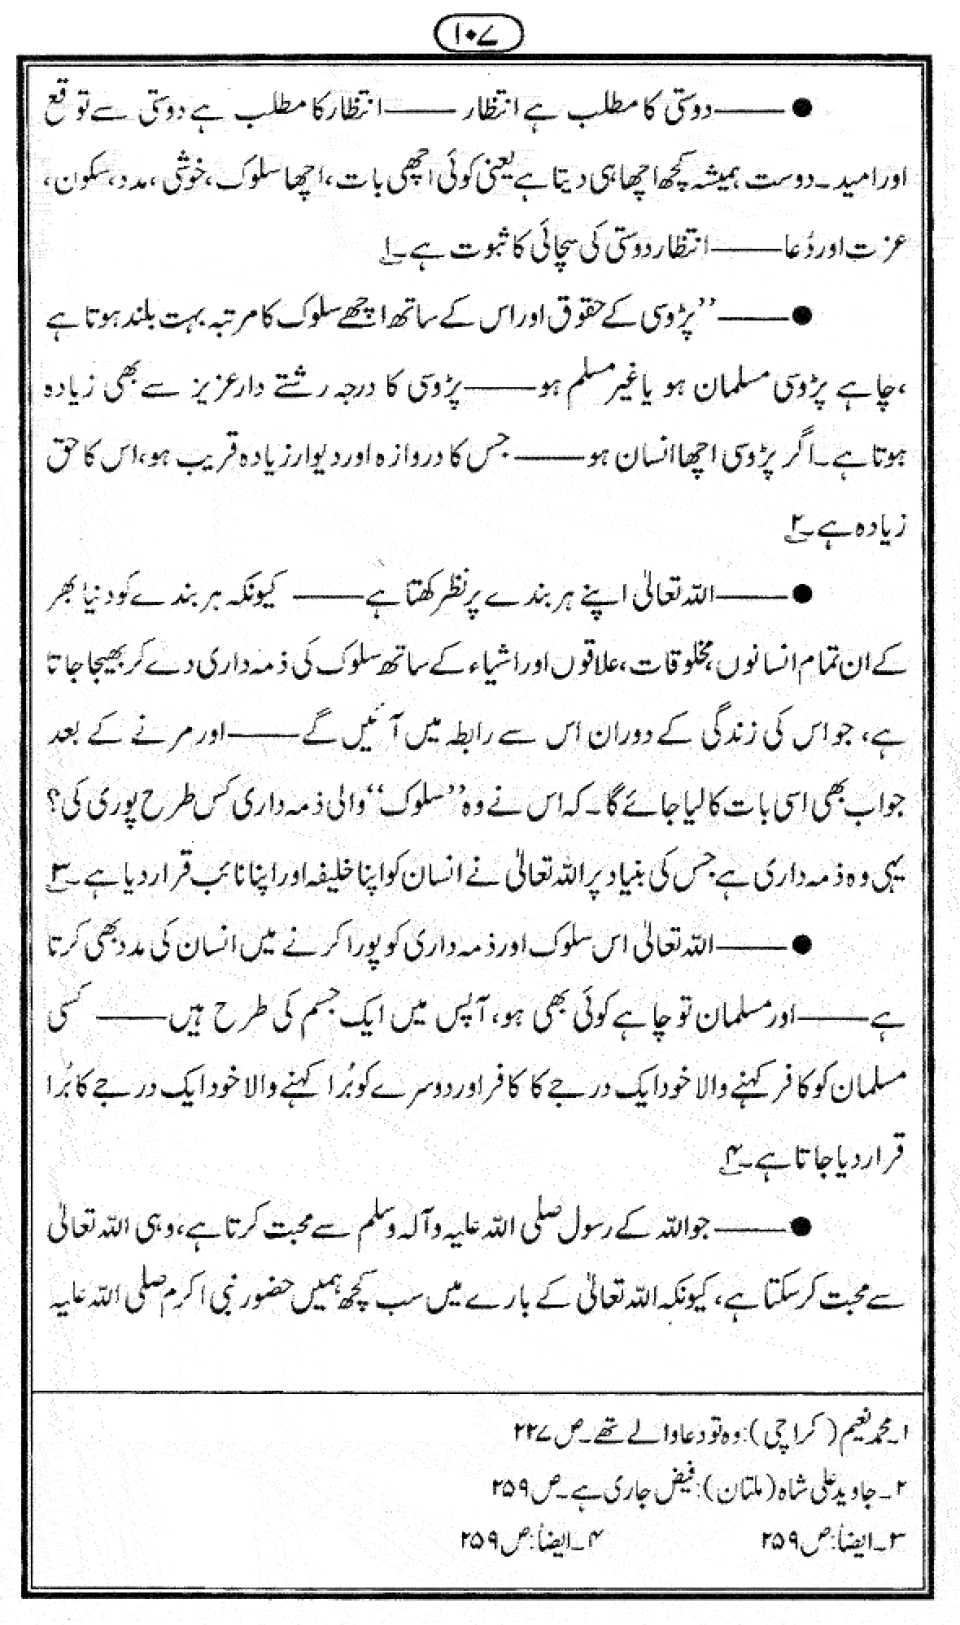 ۱۰۷
●——دوستی کا مطلب ہے انتظار——انتظار کا مطلب ہے دوستی سے توقع
اور امید۔ دوست ہمیشہ کچھ اچھا ہی دیتا ہے یعنی کوئی اچھی بات، اچھا سلوک، خوشی، مدد، سکون،
عزت اور دُعا——انتظار دوستی کی سچائی کا ثبوت ہے۔۱
●——”پڑوسی کے حقوق اور اس کے ساتھ اچھے سلوک کا مرتبہ بہت بلند ہوتا ہے
،چاہے پڑوسی مسلمان ہو یا غیر مسلم ہو——پڑوسی کا درجہ رشتے دار عزیز سے بھی زیادہ
ہوتا ہے۔ اگر پڑوسی اچھا انسان ہو——جس کا دروازہ اور دیوار زیادہ قریب ہو، اس کا حق
زیادہ ہے۔۲
●——اللہ تعالیٰ اپنے ہر بندے پر نظر رکھتا ہے——کیونکہ ہر بندے کو دنیا بھر
کے ان تمام انسانوں، مخلوقات، علاقوں اور اشیاء کے ساتھ سلوک کی ذمہ داری دے کر بھیجا جاتا
ہے، جو اس کی زندگی کے دوران اس سے رابطہ میں آئیں گے——اور مرنے کے بعد
جواب بھی اسی بات کا لیا جائے گا۔ کہ اس نے وہ ”سلوک“ والی ذمہ داری کس طرح پوری کی؟
یہی وہ ذمہ داری ہے جس کی بنیاد پر اللہ تعالیٰ نے انسان کو اپنا خلیفہ اور اپنا نائب قرار دیا ہے۔۳
●——اللہ تعالیٰ اس سلوک اور ذمہ داری کو پورا کرنے میں انسان کی مدد بھی کرتا
ہے——اور مسلمان تو چاہے کوئی بھی ہو، آپس میں ایک جسم کی طرح ہیں——کسی
مسلمان کو کافر کہنے والا خود ایک درجے کا کافر اور دوسرے کو بُرا کہنے والا خود ایک درجے کا بُرا
قرار دیا جاتا ہے۔۴
●——جو اللہ کے رسول صلی اللہ علیہ وآلہ وسلم سے محبت کرتا ہے، وہی اللہ تعالیٰ
سے محبت کر سکتا ہے، کیونکہ اللہ تعالیٰ کے بارے میں سب کچھ ہمیں حضور نبی اکرم صلی اللہ علیہ
۱۔ محمد نعیم (کراچی): وہ تو دعا والے تھے۔ ص ۲۲۷
۲۔ جاوید علی شاہ (ملتان): فیض جاری ہے۔ ص ۲۵۹
۳۔ ایضاً: ص ۲۵۹ ۴۔ ایضاً: ص ۲۵۹